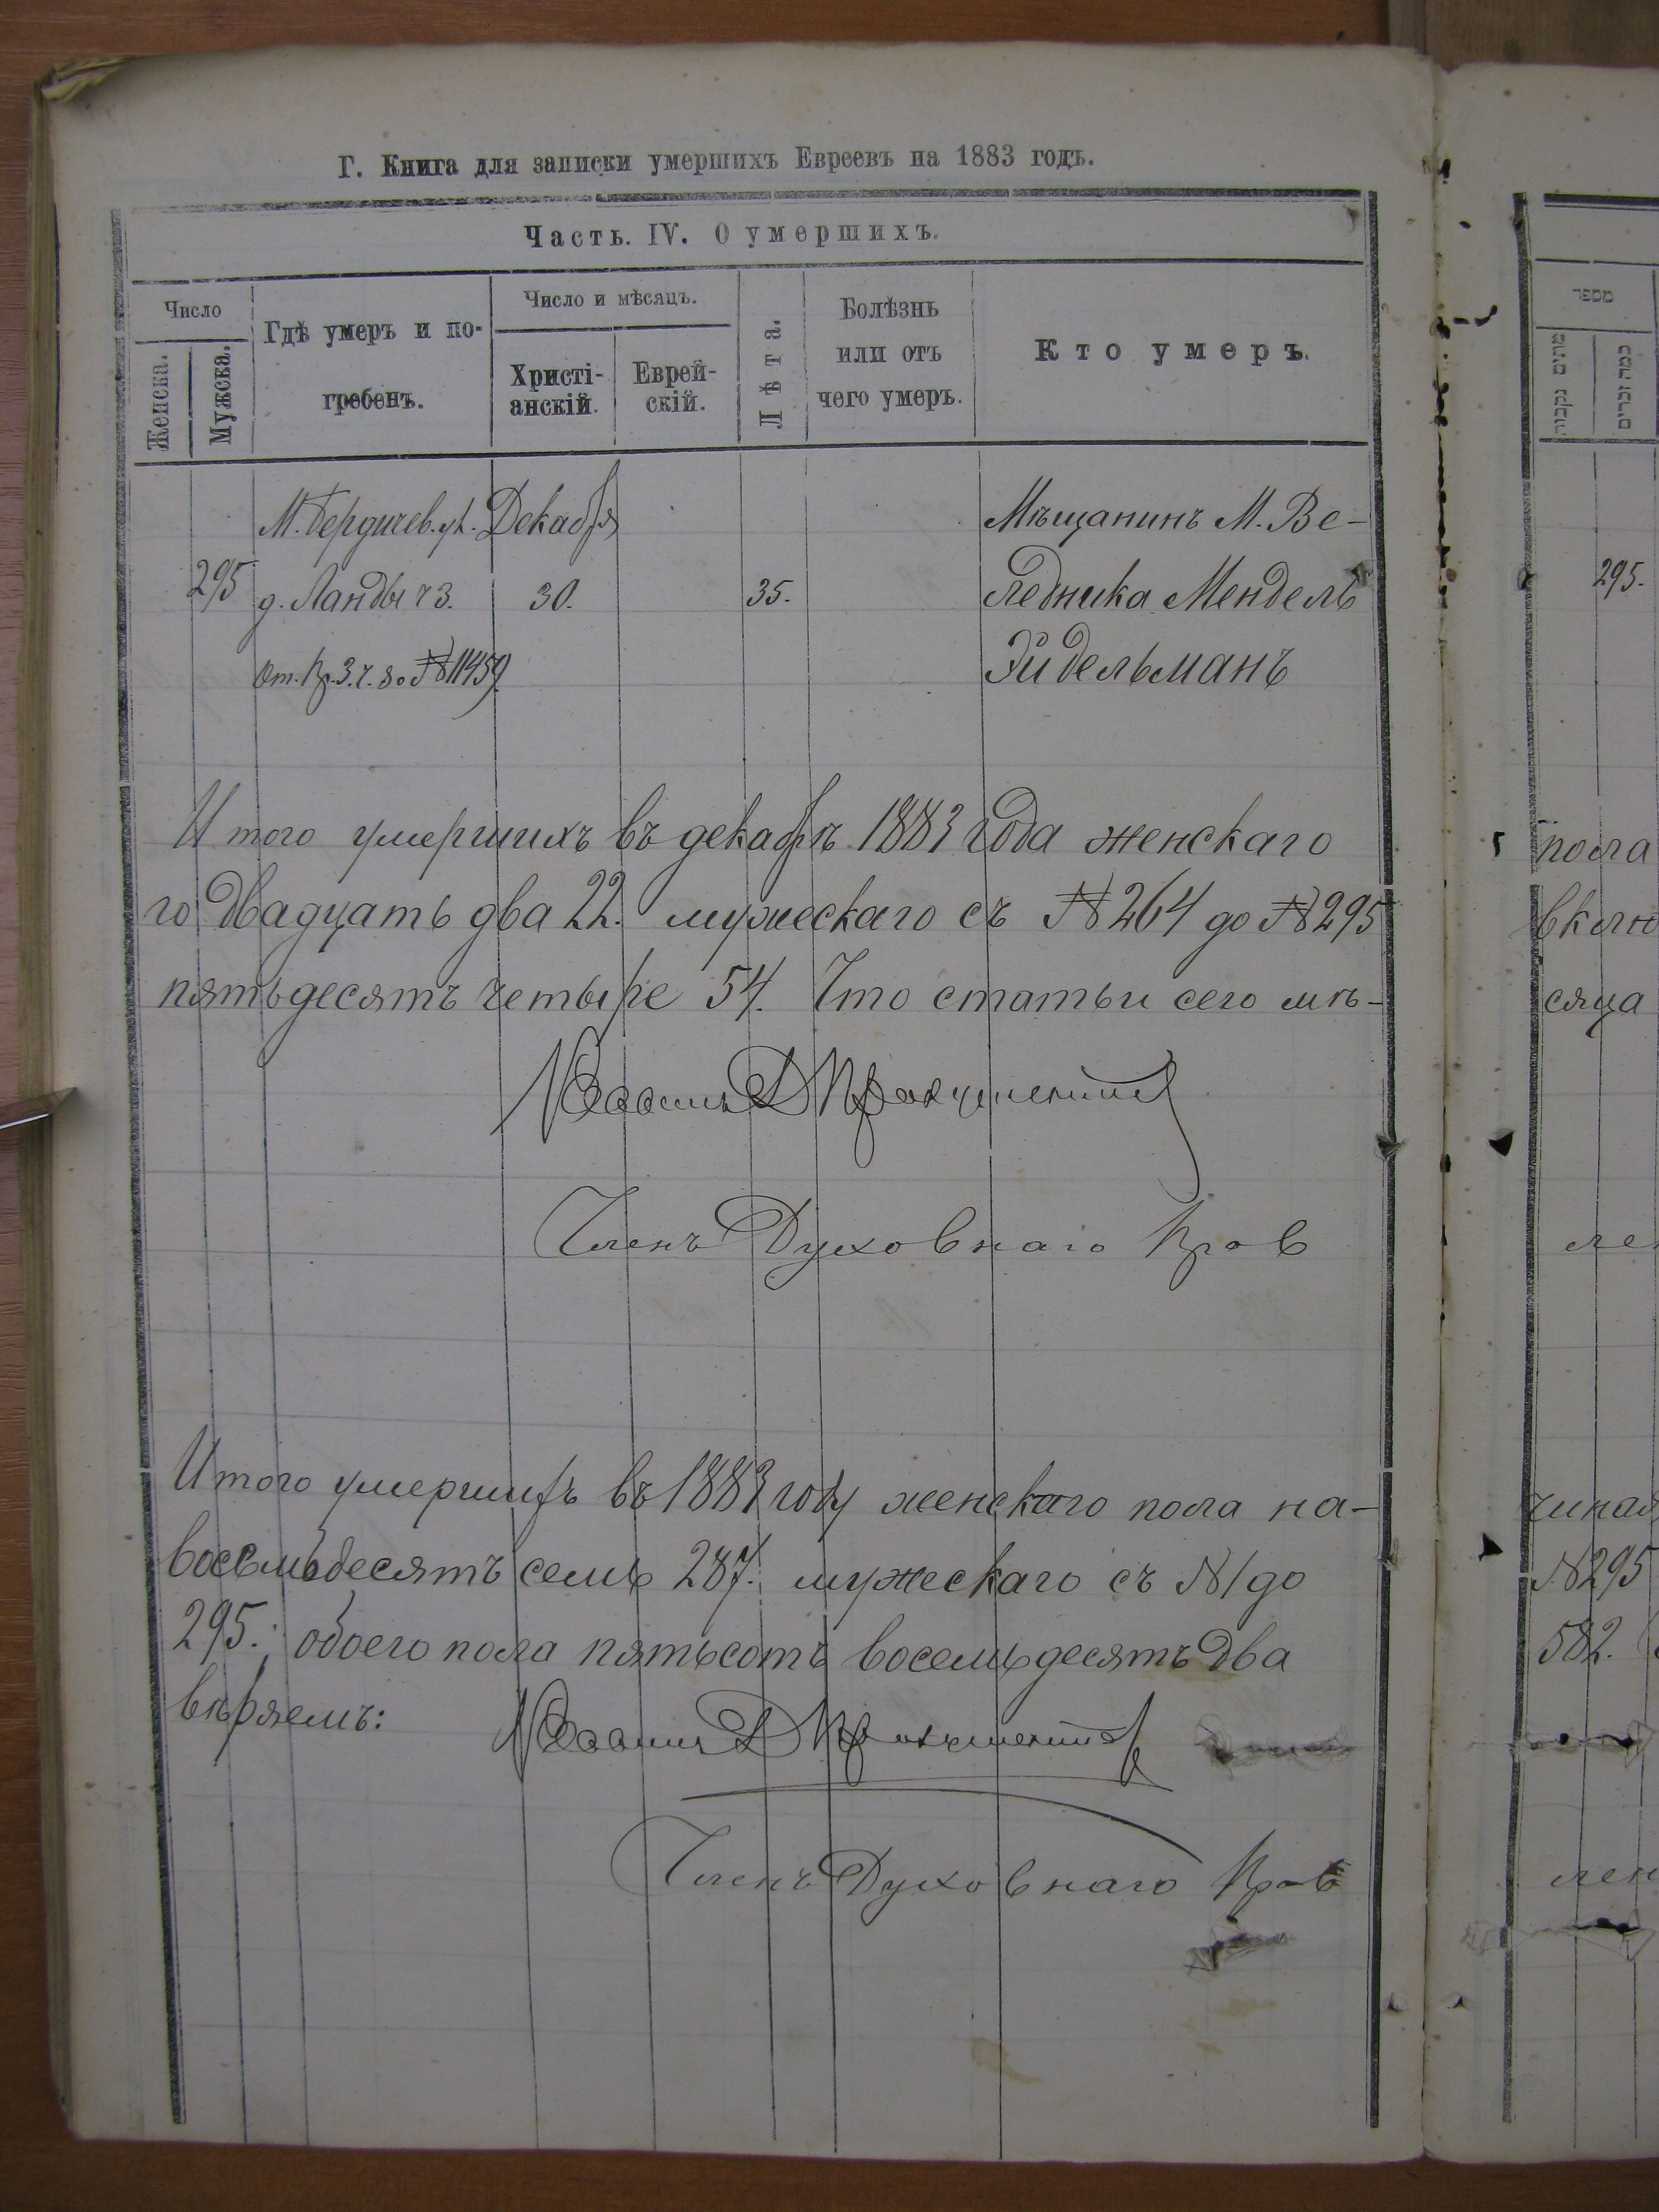 Г. Книга для записки умершихъ Евреевъ на 1883 годъ.
Часть. IV. О умершихъ.
Число
Женска.
Мужска.
Гдѣ умеръ и по-
гребенъ.
Число и мѣсяцъ.
Христі-
анскій.
Еврей-
скій.
Лѣта.
Болѣзнь
или отъ
чего умеръ.
Кто умеръ.
М. Бердичев. ул. Декабря Мѣщанинъ М. Ве-
295 д. Ланды ч 3. 30. 35. Ледника Мендель
От. Пр. 3. ч. до №11459. Эйдельманъ
Итого умершихъ въ декабрѣ 1883 года женскаго
го двадцать два 22. мужескаго съ №264 до №295
пятьдесятъ четыре 54. Что статьи сего мѣ-
Членъ Духовнаго Прав
Итого умершихъ въ 1883 году женскаго пола на-
восемьдесятъ семь 287. мужескаго съ №1 до
295.; обоего пола пятьсотъ восемьдесятъ два
вѣряемъ:
Членъ Духовнаго Прав
מספר
295.
пола
вклю
сяца
ле
чиная
№295
582.
лен